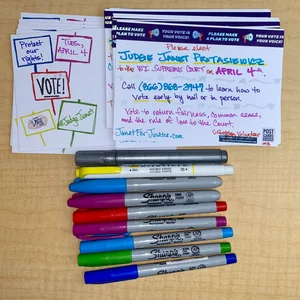 Protect our rights!
TUES, APRIL 4
VOTE!
Judge Janet
PLEASE MAKE A PLAN TO VOTE
YOUR VOTE IS YOUR VOICE!
Please elect
JUDGE JANET PROTASIEWICZ
to the WI SUPREME COURT on APRIL 4th
Call (866) 868-3947 to learn how to
Vote early by mail or in person.
Vote to return fairness, common sense,
and the rule of law to the Court.
JanetForJustice.com
Volunteer
Sharpie
Sharpie
Sharpie
Sharpie
Sharpie
Sharpie